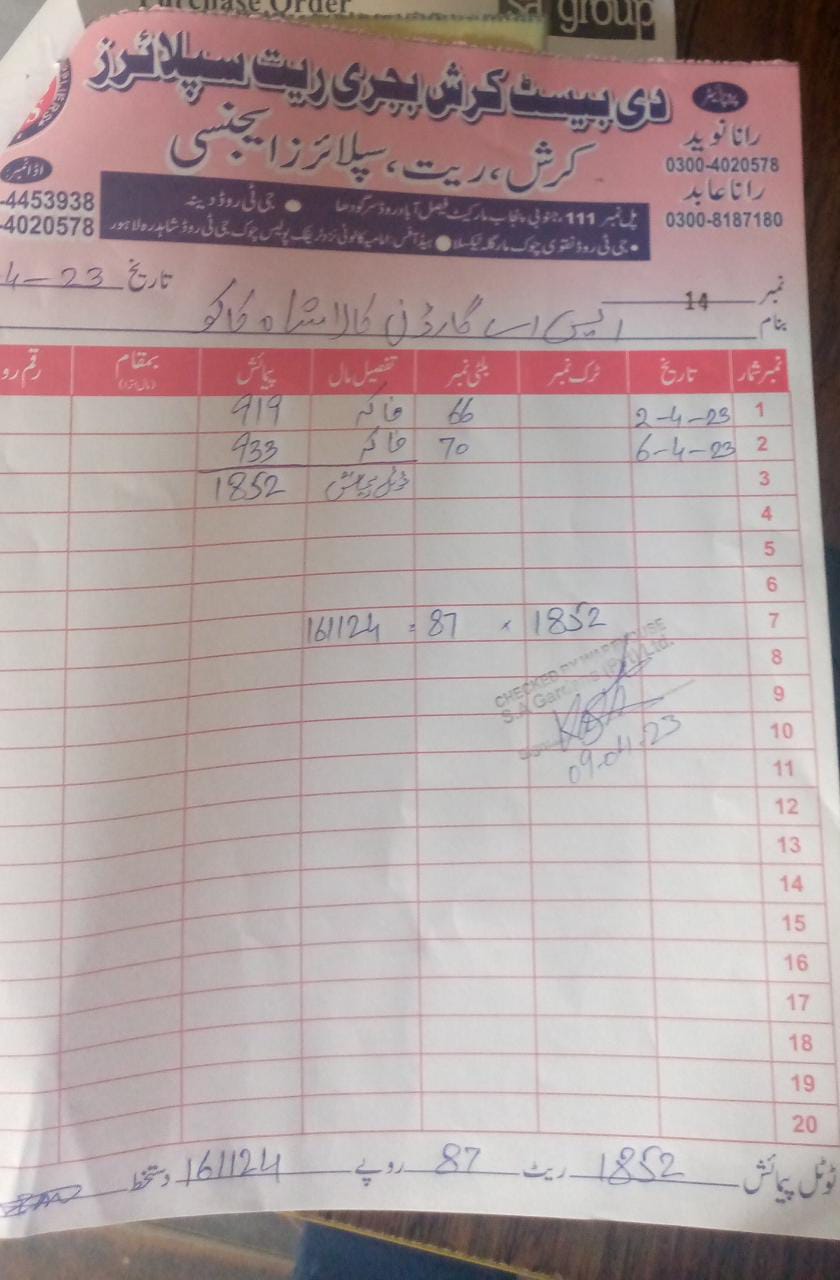 Purchase Order
sa group
دی بیسٹ کرش بجری ریت سپلائرز
کرش، ریت، سپلائرز ایجنسی
پروپرائیٹر
رانا نوید
0300-4020578
رانا عابد
0300-8187180
اڈا نمبر
-4453938
-4020578
پل نمبر 111 جنوبی پنجاب مارکیٹ فیصل آباد روڈ سرگودھا ● جی ٹی روڈ دینہ
● جی ٹی روڈ نقوی چوک مارگلہ ٹیکسلا ● ہیڈ آفس: امامیہ کالونی نزد ٹریفک پولیس چوک جی ٹی روڈ شاہدرہ لاہور
نمبر 14 تاریخ 4-23
بنام ایس اے گارڈن کالا شاہ کاکو
نمبر شمار تاریخ ٹرک نمبر بلٹی نمبر تفصیل مال پیمائش بمقام رقم رو
1 2-4-23 66 خاکہ 919
2 6-4-23 70 خاکہ 933
3 1852
4
5
6
7 1852 × 87 = 161124
8
CHECKED BY WAREHOUSE
S.A Gardens (Pvt) Ltd.
9
10
09-04-23
11
12
13
14
15
16
17
18
19
20
ٹوٹل پیمائش 1852 ریٹ 87 روپے 161124 دستخط